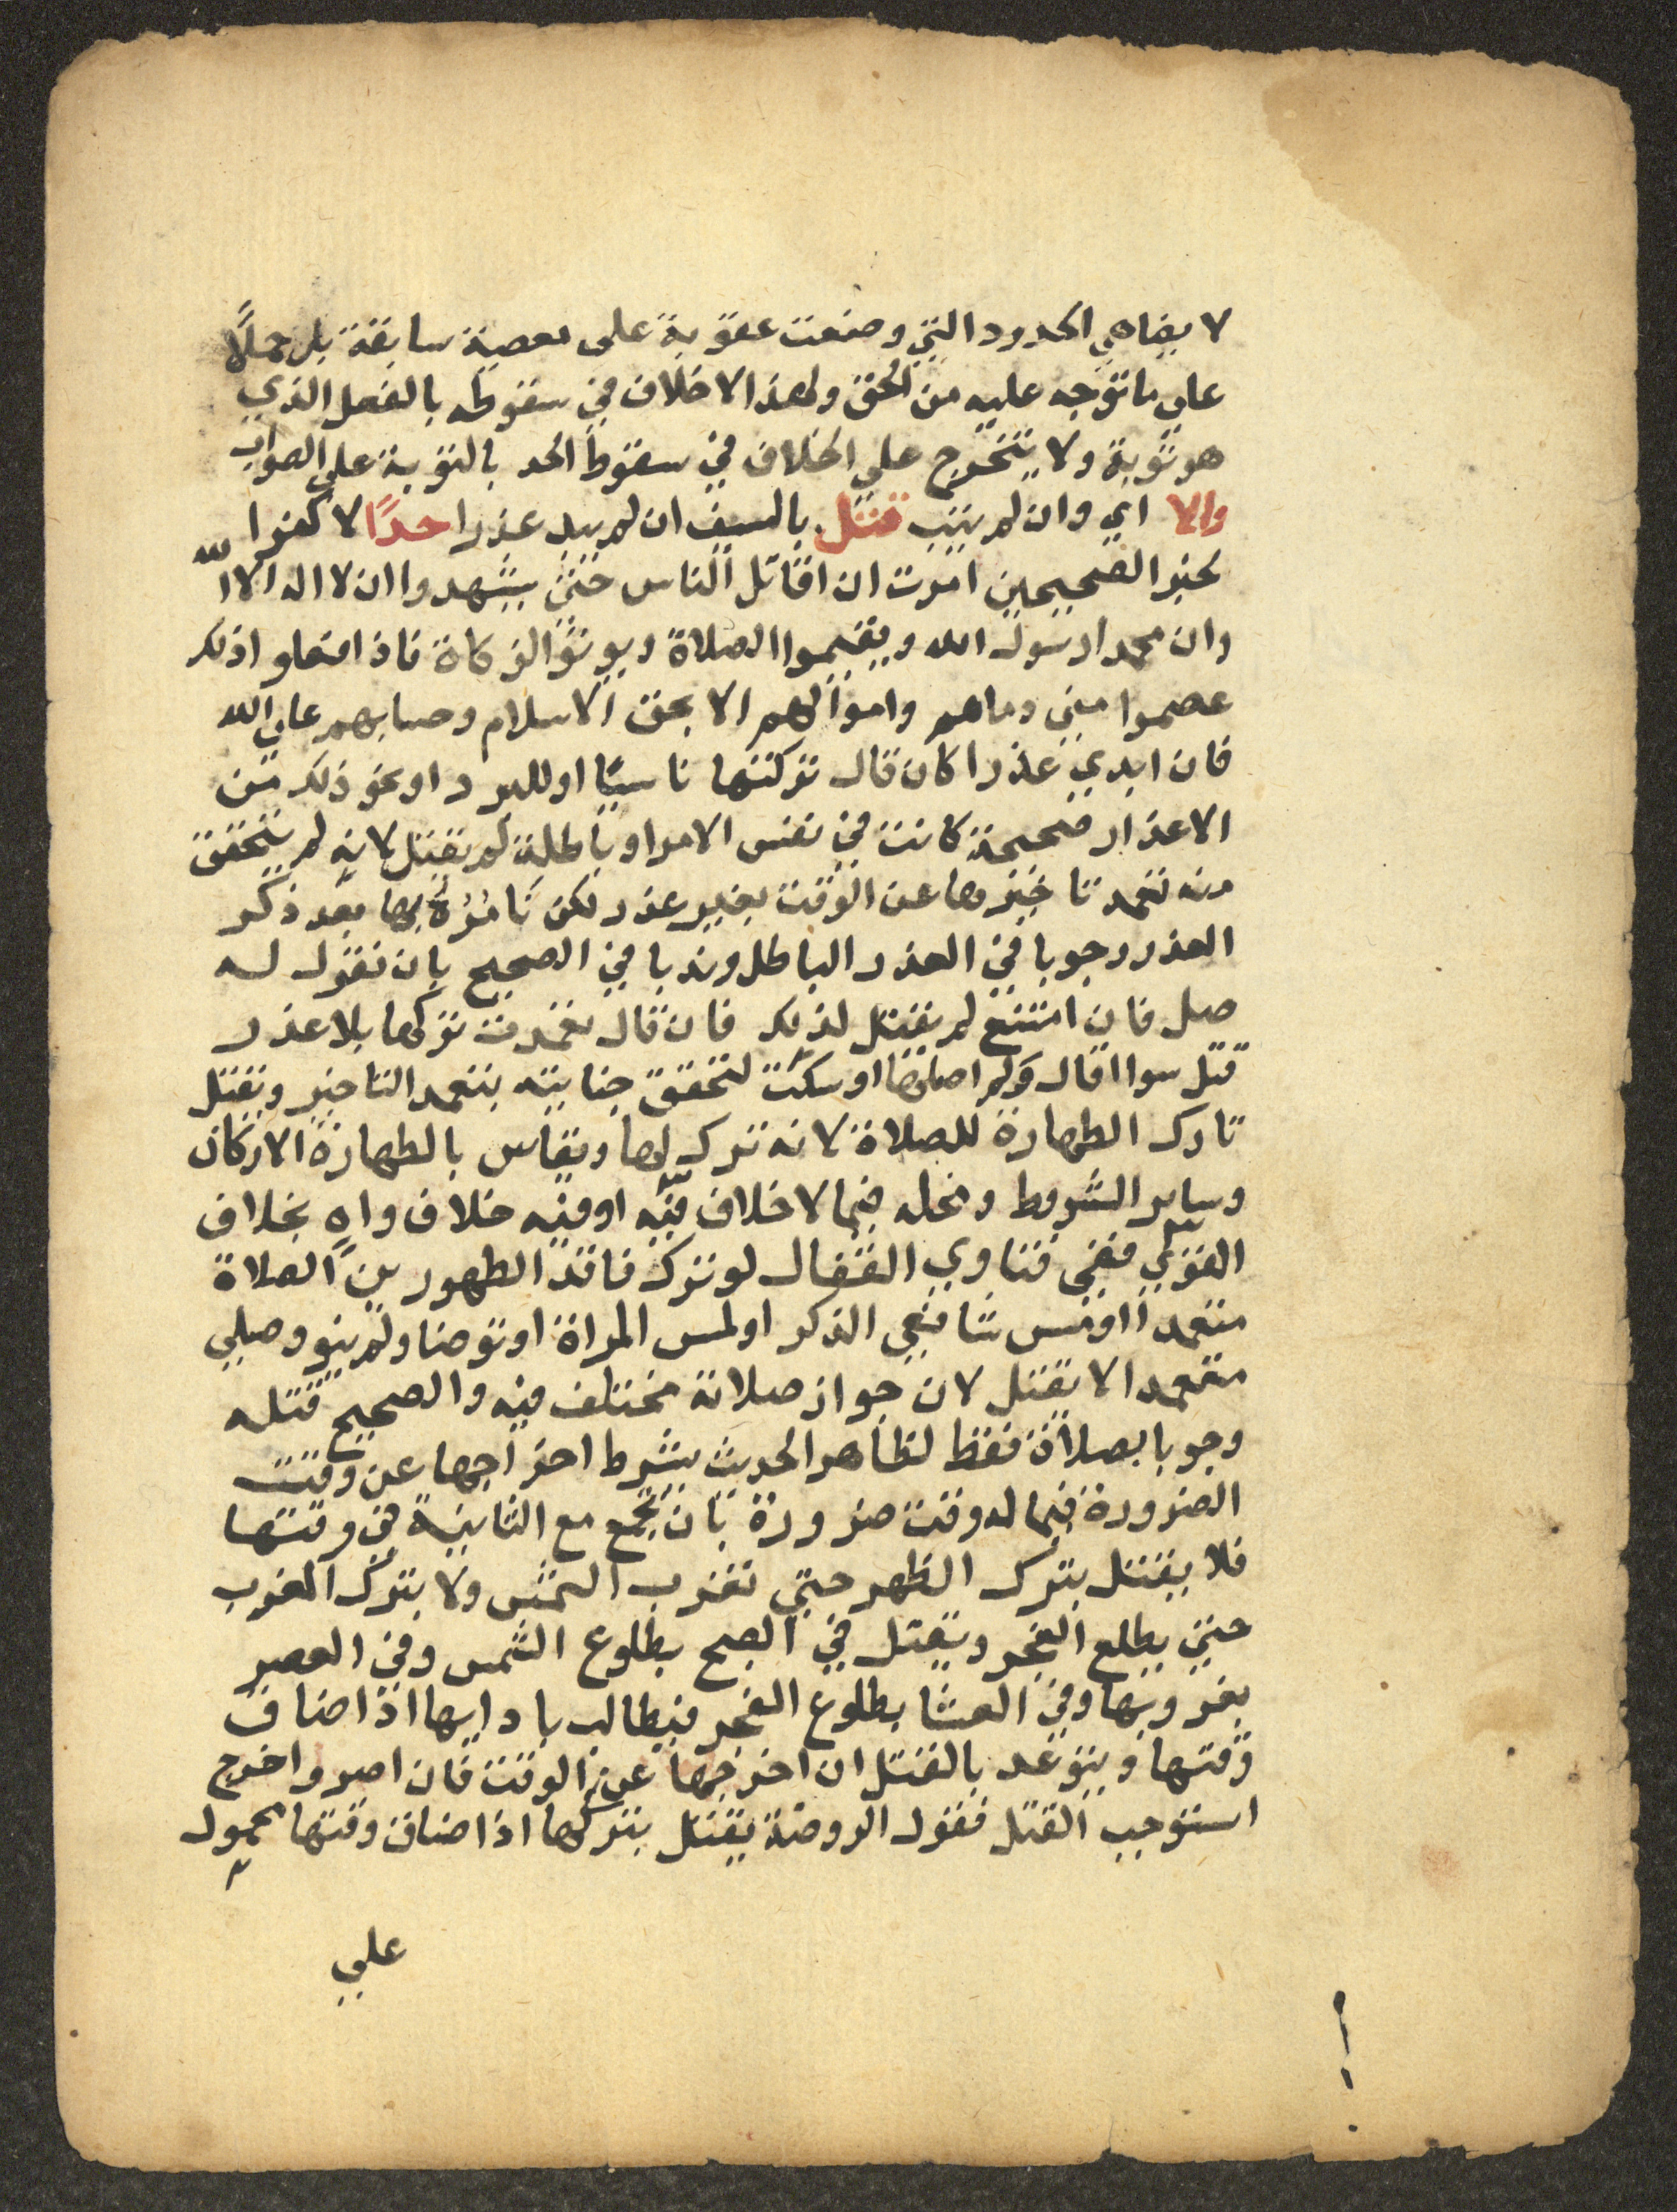 لا يضاهي الحدود التي وضعت عقوبة على معصية سابقة بل حملًا
علي ما توجه عليه من الحق ولهذا لا خلاف في سقوطه بالفعل الذي
هو توبة ولا يتخرج علي الخلاف في سقوط الحد بالتوبة علي الصواب
والا اي وان لم يتب قتل بالسيف ان لم يبد عذرا حدًا لا كفرا
لخبر الصحيحين امرت ان اقاتل الناس حتي يشهدوا ان لا اله الا الله
وان محمدا رسول الله ويقيموا الصلاة ويوتو الزكاة فاذا فعلو اذلك
عصموا مني دماهم واموالهم الا بحق الاسلام وحسابهم علي الله
فان ابدي عذرا كان قال تركتها ناسيًا او للبرد او نحو ذلك من
الاعذار صحيحة كانت في نفس الامر او باطلة لم يقتل لانه لم يتحقق
منه تعمد تاخيرها عن الوقت بغير عذر لكن نامره بها بعد ذكر
العذر وجوبا في العذر الباطل وندبا في الصحيح بان نقول له
صل فان امتنع لم يقتل لذلك فان قال تعمدت تركها بلا عذر
قتل سوا اقال ولم اصلها او سكت لتحقق جنايته بتعمد التاخير ويقتل
تارك الطهارة للصلاة لانه ترك لها ويقاس بالطهارة الاركان
وساير الشروط ومحله فيما لا خلاف فيه او فيه خلاف واهٍ بخلاف
القوي ففي فتاوي القفال لو ترك فاقد الطهورين الصلاة
متعمدا او مس شافعي الذكر او لمس المراة او توضا ولم ينو وصلي
متعمدا لا يقتل لان جواز صلاته مختلف فيه والصحيح قتله
وجوبا بصلاة فقط لظاهر الحديث بشرط اخراجها عن وقت
الضرورة فيما له وقت ضرورة بان تجمع مع الثانية في وقتها
فلا يقتل بترك الظهر حتي تغرب الشمس ولا بترك المغرب
حتي يطلع الفجر ويقتل في الصبح بطلوع الشمس وفي العصر
بغروبها وفي العشا بطلوع الفجر فيطالب بادايها اذا ضاق
وقتها ويتوعد بالقتل ان اخرجها عن الوقت فان اصر واخرج
استوجب القتل فقول الروضة يقتل بتركها اذا ضاق وقتها محمول
علي